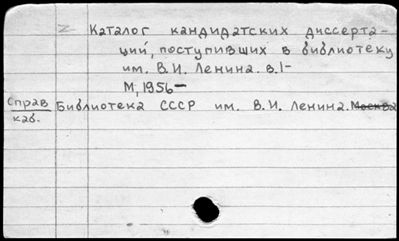 Z Каталог кандидатских диссерта-
ций, поступивших в библиотеку
им. В.И. Ленина. в.1-
М, 1956-
Справ Библиотека СССР им. В.И. Ленина. Москва
каб.